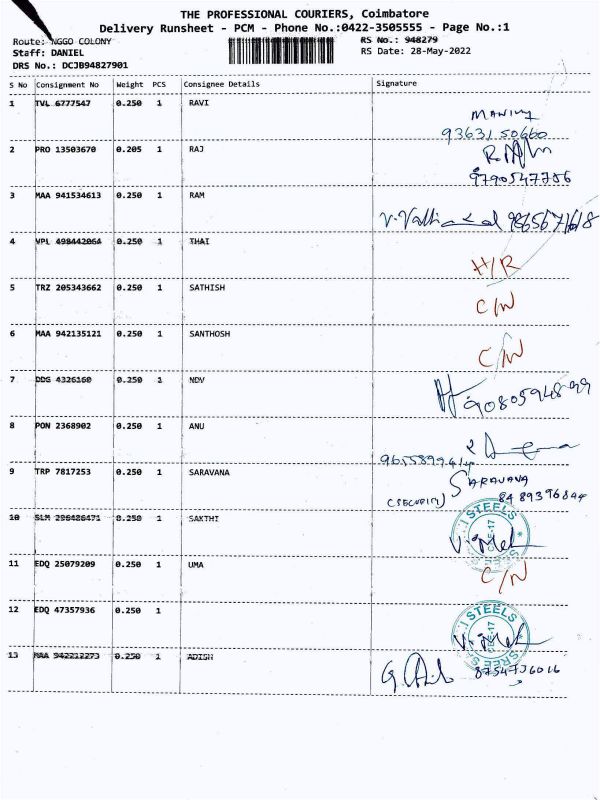 THE PROFESSIONAL COURIERS, Coimbatore
Delivery Runsheet - PCM - Phone No.:0422-3505555 - Page No.:1
Route: NGGO COLONY RS No.: 948279
Staff: DANIEL RS Date: 28-May-2022
DRS No.: DCJB94827901
S No Consignment No Weight PCS Consignee Details Signature
1 TVL 6777547 0.250 1 RAVI
93631 50660
2 PRO 13503670 0.205 1 RAJ
9790547756
3 MAA 941534613 0.250 1 RAM
4 VPL 498442064 0.250 1 THAI
H/R
5 TRZ 205343662 0.250 1 SATHISH
C/N
6 MAA 942135121 0.250 1 SANTHOSH
C/N
7 DDG 4326160 0.250 1 NDV
9080594899
8 PON 2368902 0.250 1 ANU
9 TRP 7817253 0.250 1 SARAVANA
SARAVANA
(SECURITY) 8489396844
10 SLM 296486471 0.250 1 SAKTHI
STEELS
11 EDQ 25079209 0.250 1 UMA
C/N
12 EDQ 47357936 0.250 1
STEELS
SREE
13 MAA 942212273 0.250 1 ADISH
8754736016